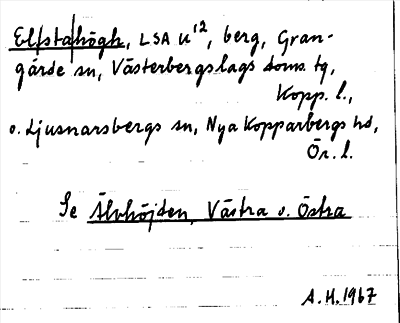 Elfstahögh, LSA U¹², berg, Gran-
gärde sn, Västerbergslags doms. tg,
Kopp. l.,
o. Ljusnarsbergs sn, Nya Kopparbergs hd,
Ör. l.
Se Älvhöjden, Västra o. Östra
A.H. 1967